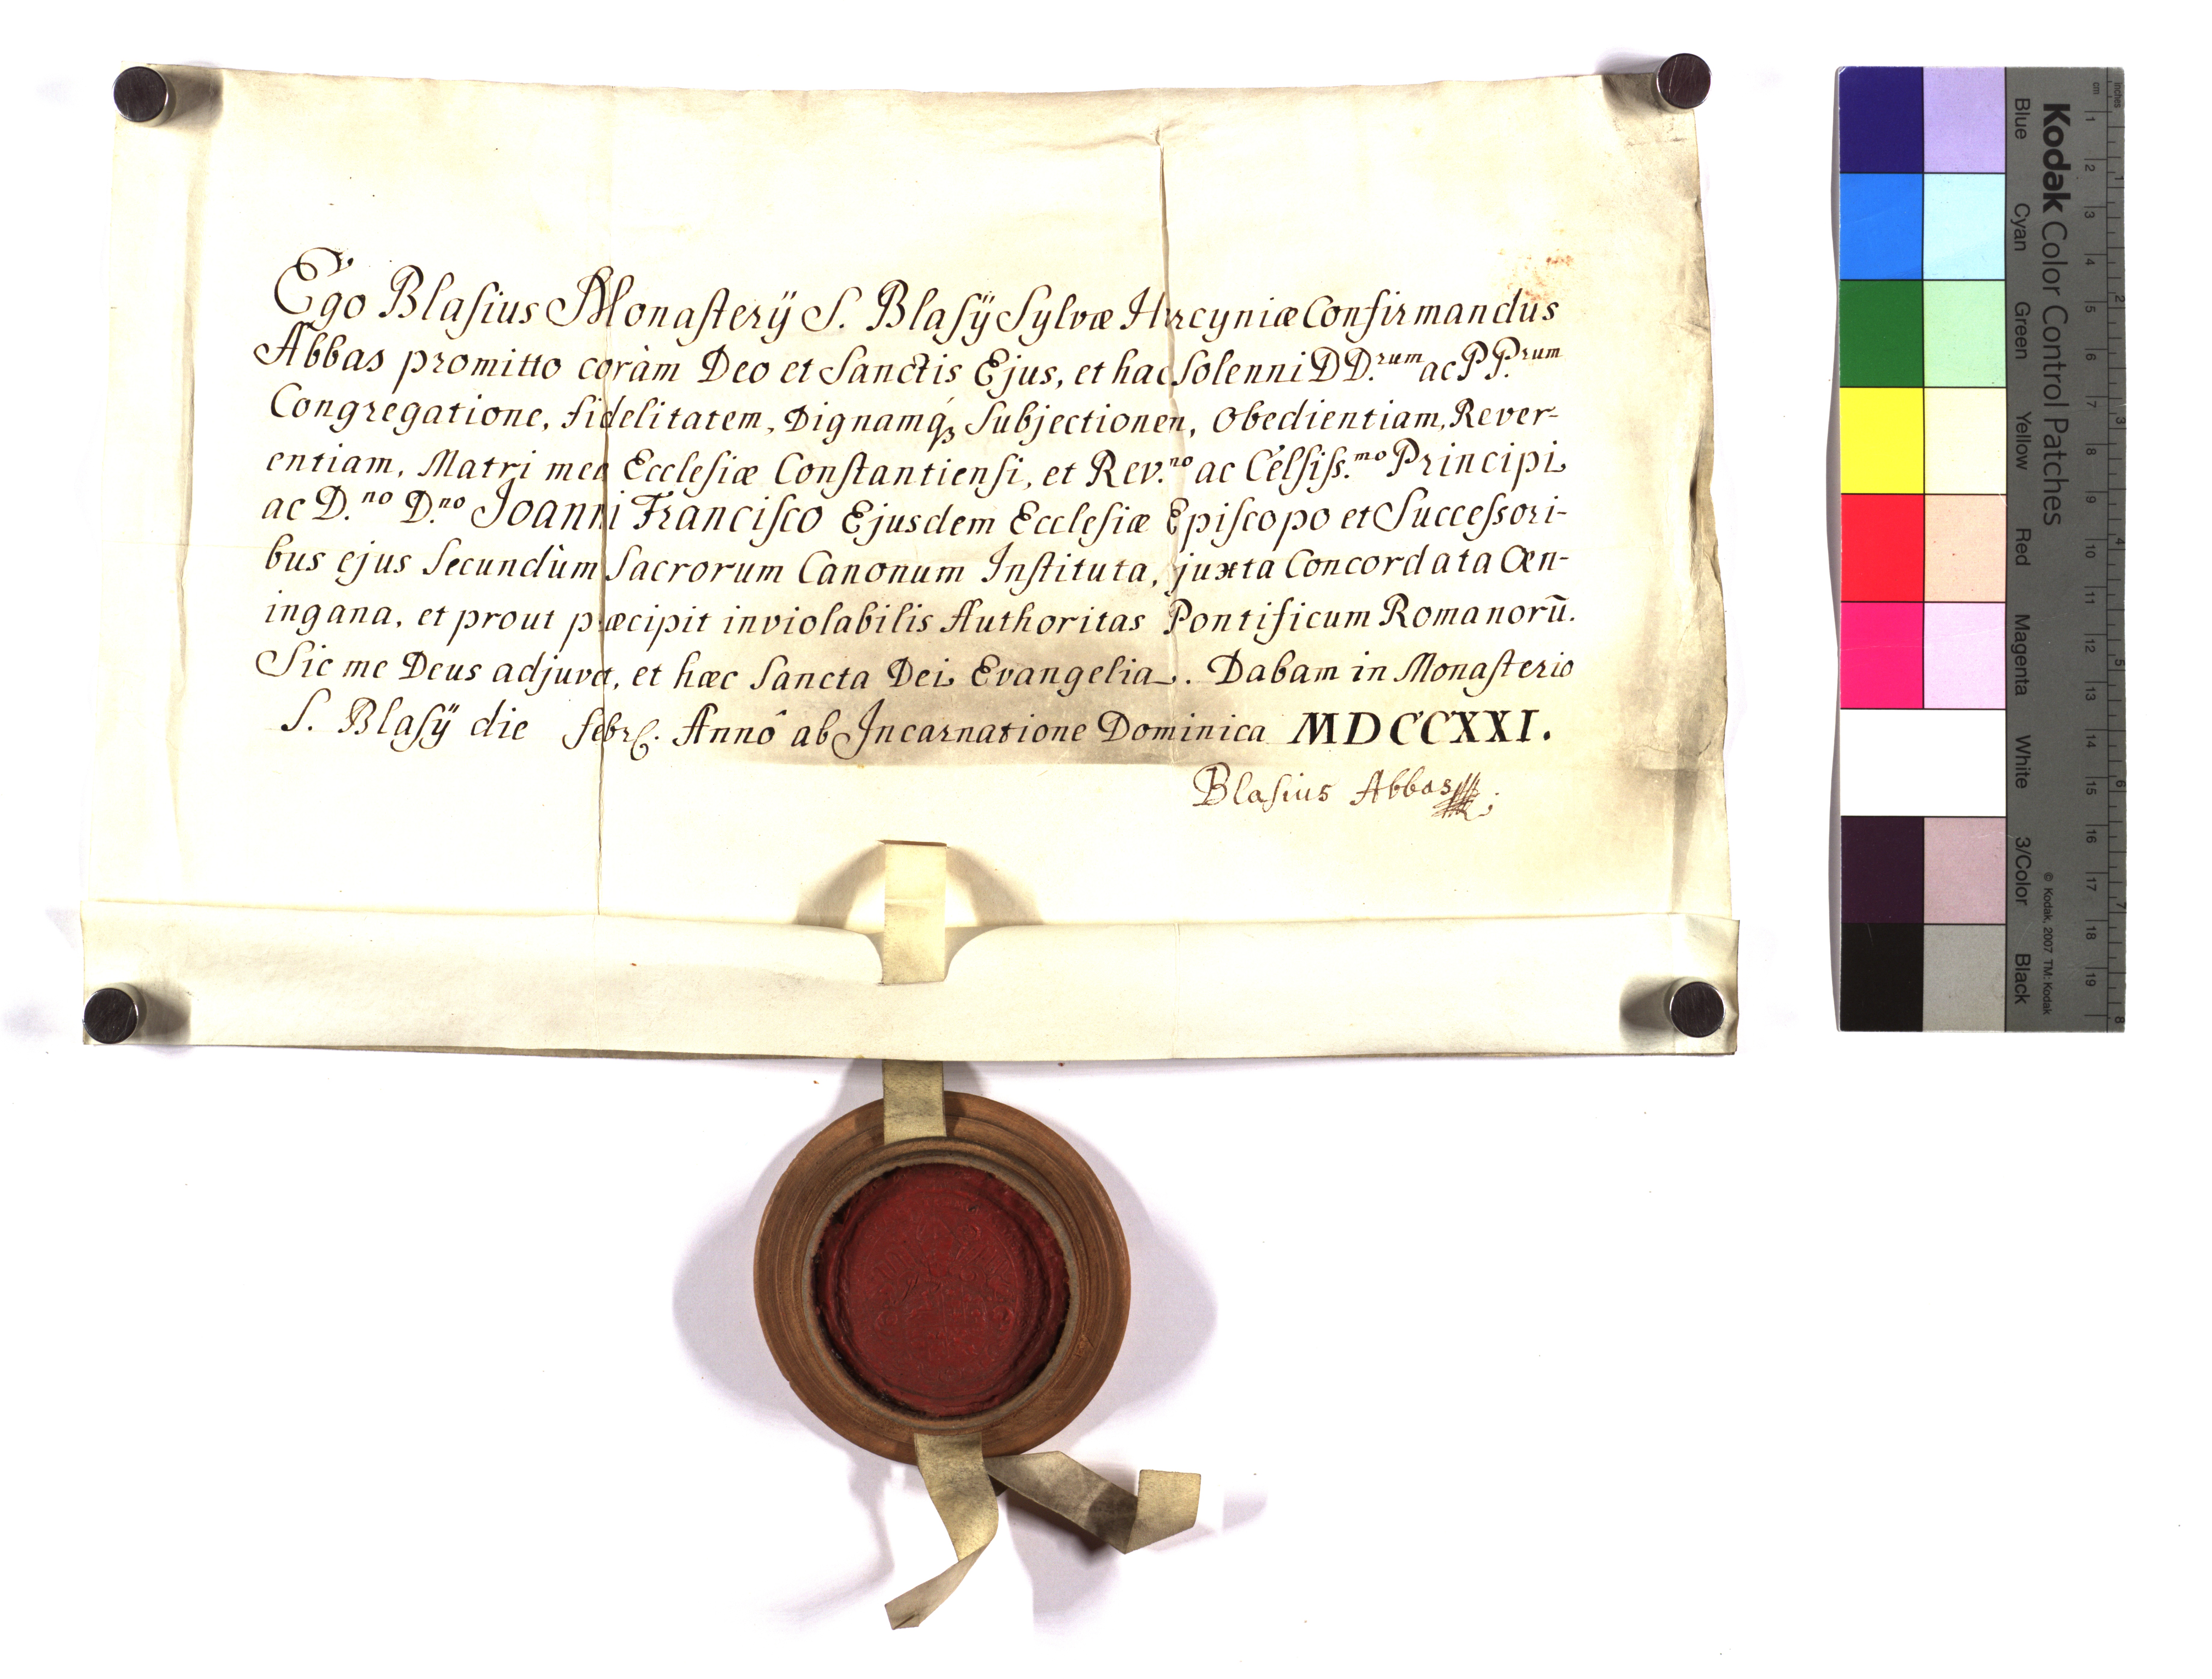 Ego Blasius Monasterÿ S. Blasÿ Sylvæ Hercyniæ Confirmandus
Abbas promitto coràm Deo et Sanctis Ejus, et hac Solenni DD.rum ac PP.rum
Congregatione, fidelitatem, Dignamq́ꝫ Subjectionem, Obedientiam, Rever-
entiam, Matri meæ Ecclesiæ Constantiensi, et Rev.no ac Celsiss.mo Principi
ac D.no D.no Joanni Francisco Ejusdem Ecclesiæ Episcopo et Successori-
bus ejus Secundùm Sacrorum Canonum Instituta, juxta Concordata Œn-
ingana, et prout præcipit inviolabilis Authoritas Pontificum Romanorū.
Sic me Deus adjuvet, et hæc Sancta Dei Evangelia. Dabam in Monasterio
S. Blasÿ die febr. Annô ab Incarnatione Dominica MDCCXXI.
Blasius Abbas
Kodak Color Control Patches
© Kodak, 2007 TM: Kodak
Blue Cyan Green Yellow Red Magenta White 3/Color Black
cm 1 2 3 4 5 6 7 8 9 10 11 12 13 14 15 16 17 18 19
inches 1 2 3 4 5 6 7 8